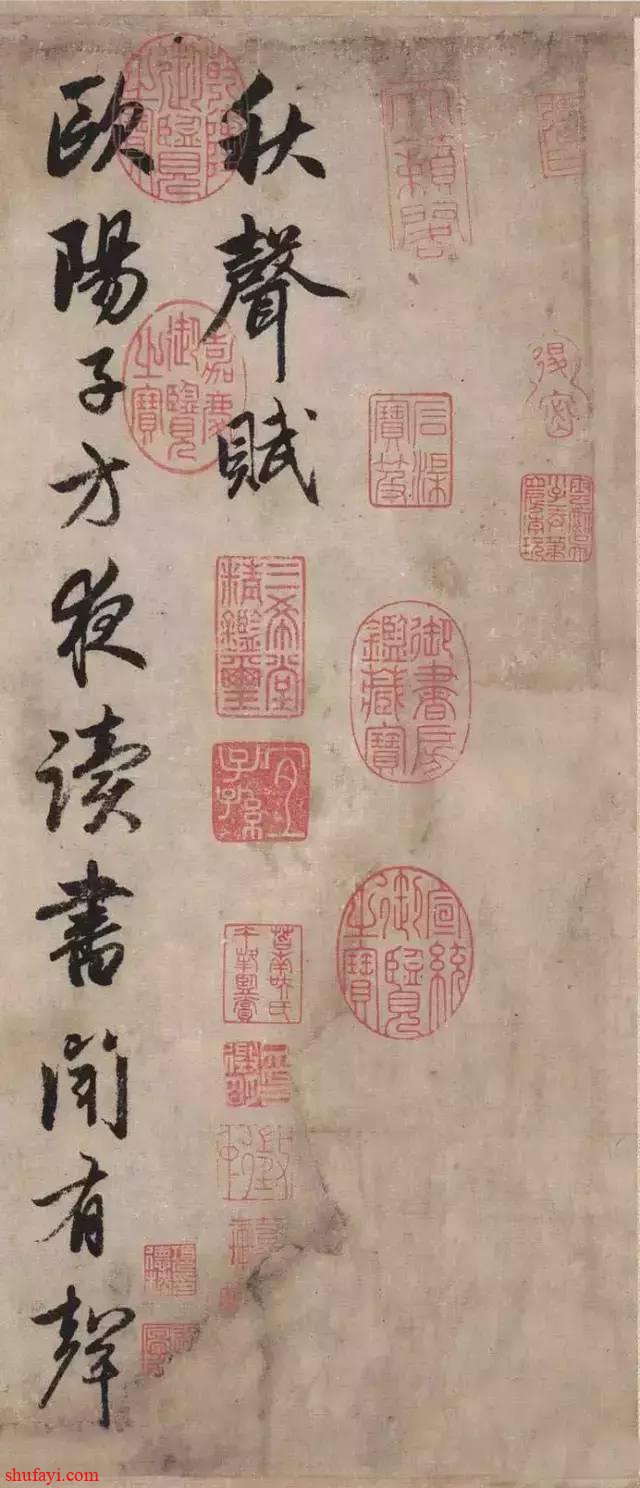 天籟閣
石渠寶笈
御書房鑑藏寶
宣統御覽之寶
秋聲賦
三希堂精鑑璽
宜子孫
乾隆御覽之寶
嘉慶御覽之寶
歐陽子方夜讀書聞有聲
shufayi.com